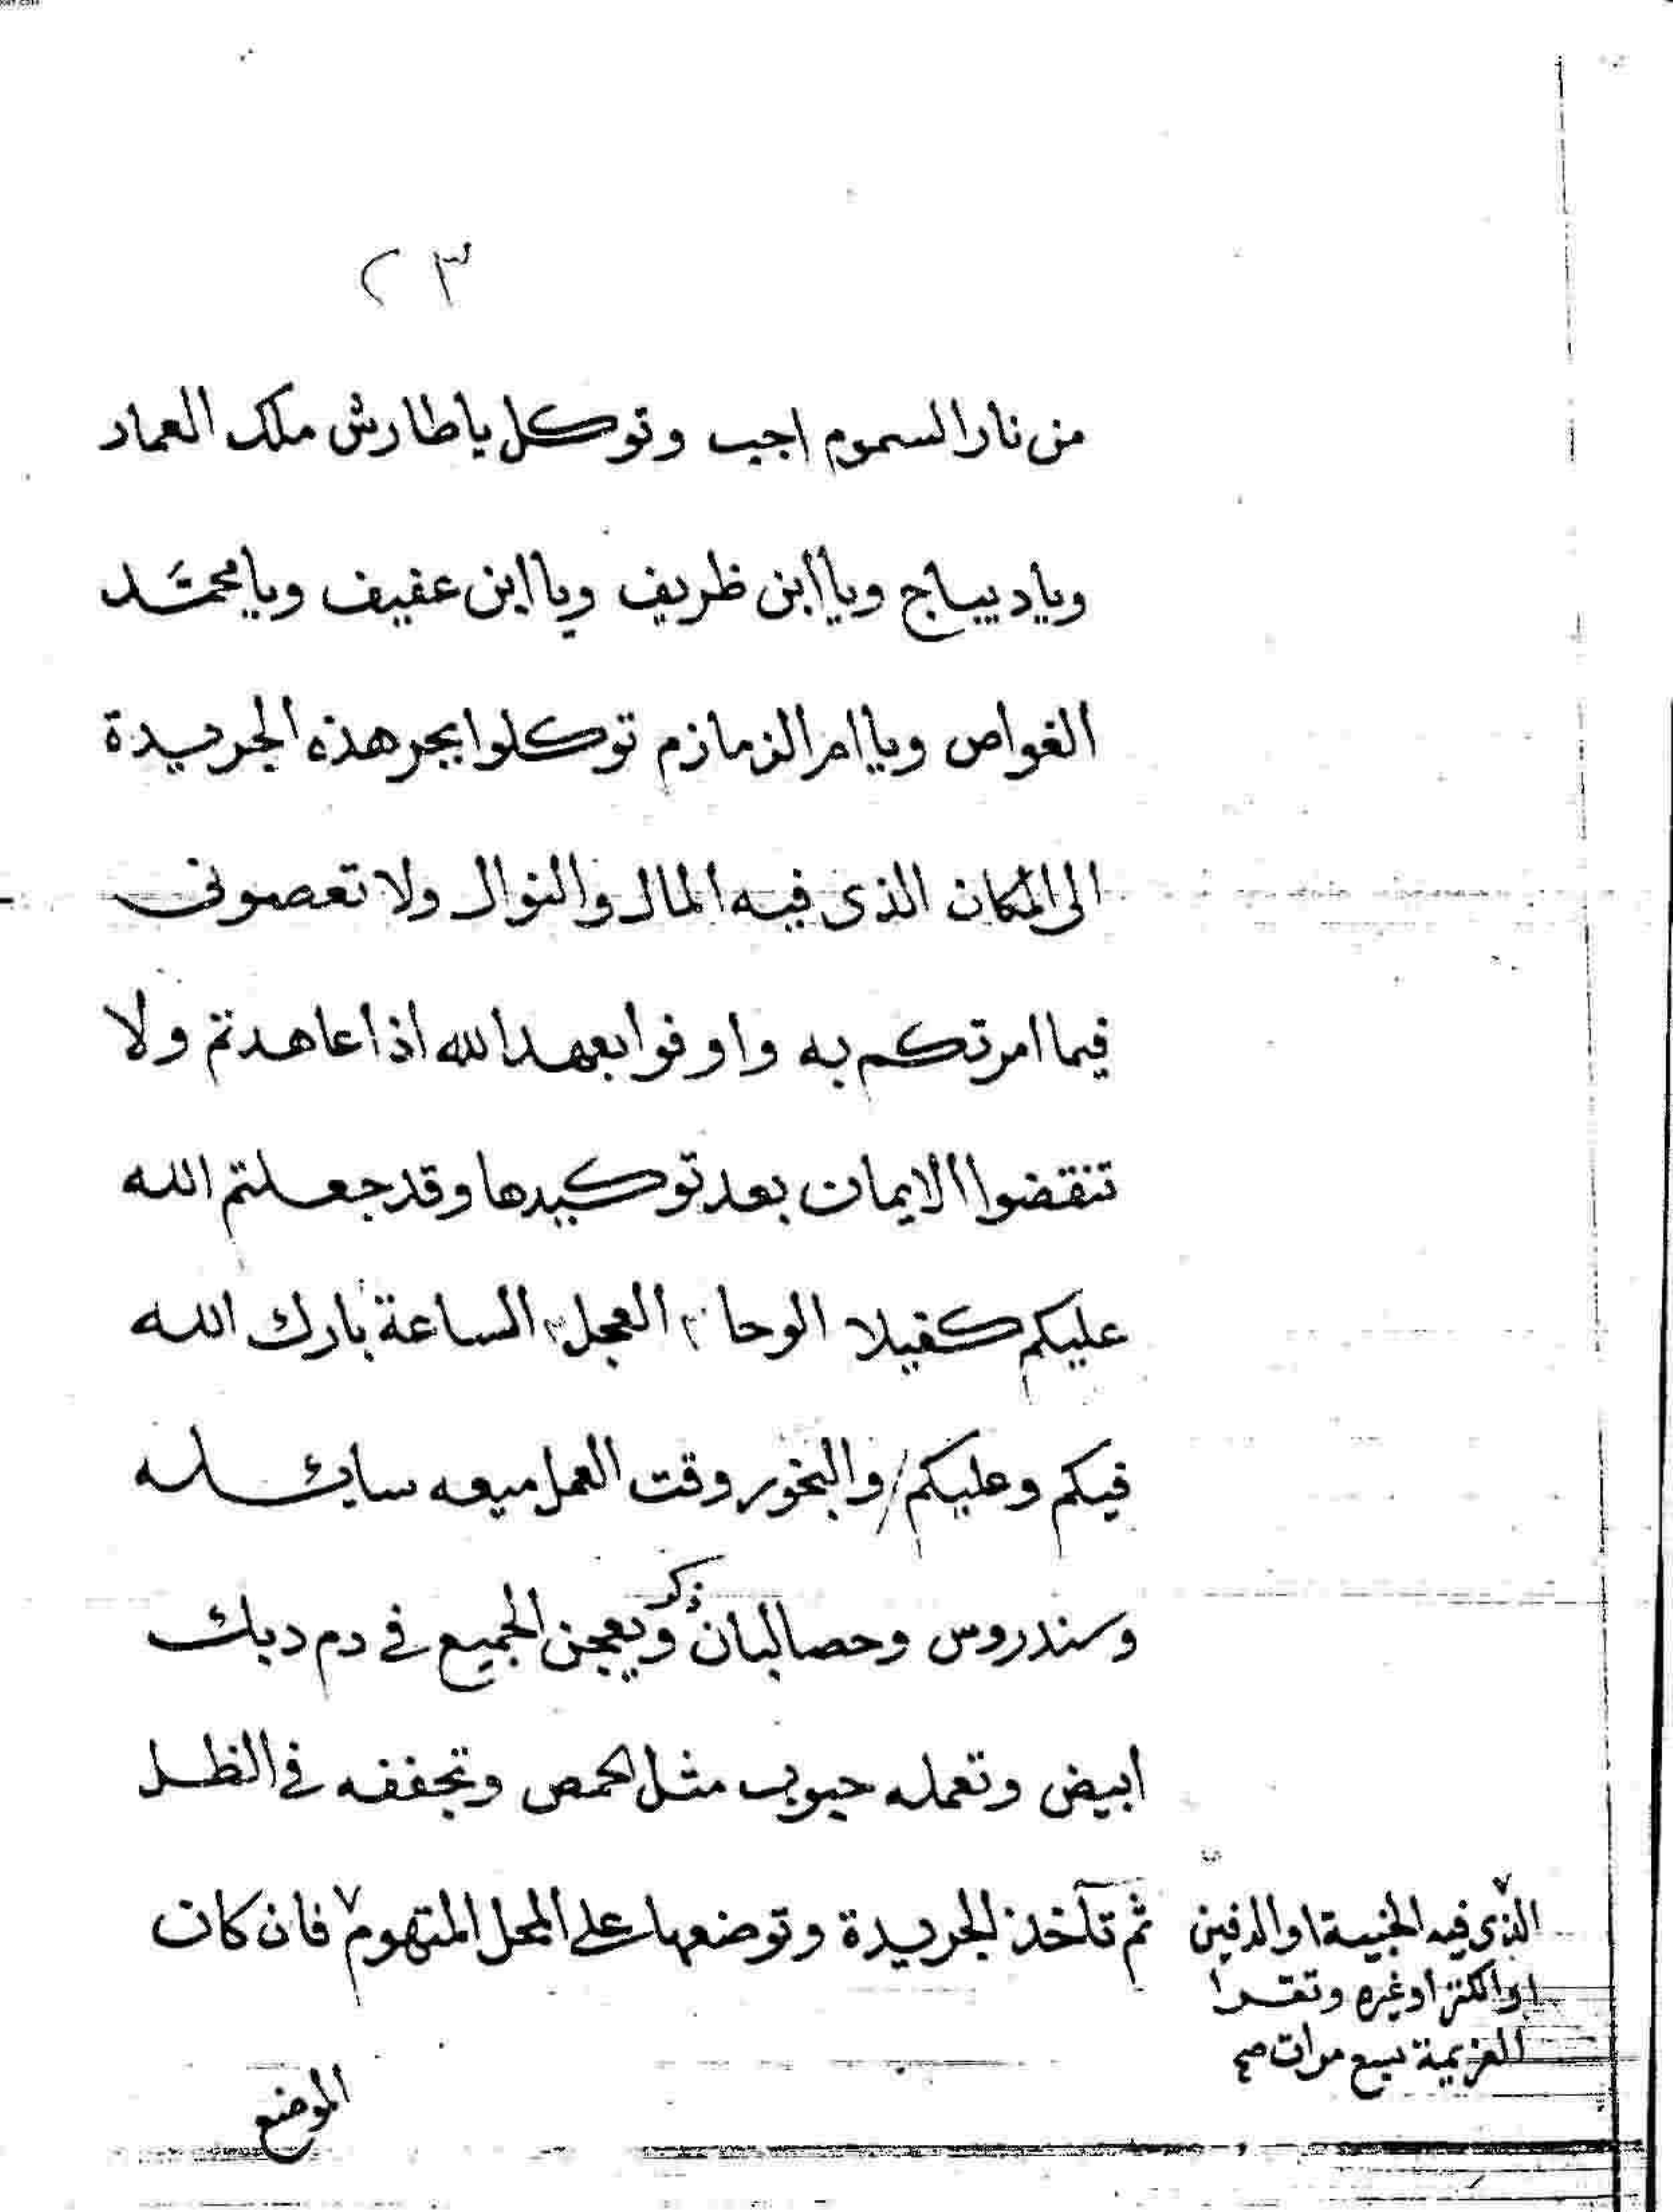 ٢٣
من نار السموم اجب وتوكل ياطارش ملك العمار
وياديباج وياابن ظريف وياابن عفيف ويامحمَّد
الغواص وياامر الزمازم توكلوا بجر هذه الجريدة
الى المكان الذى فيه المال والنوال ولا تعصونى
فيما امرتكم به واوفوا بعهد الله اذا عاهدتم ولا
تنقضوا الايمان بعد توكيدها وقد جعلتم الله
عليكم كفيلا الوحا ٢ العجل ٢ الساعة بارك الله
فيكم وعليكم / والبخور وقت العمل ميعه سايله
وسندروس وحصالبان ذكر ويعجن الجميع فى دم ديك
ابيض وتعمله حبوب مثل الحمص وتجففه فى الظل
ثم تآخذ الجريدة وتوضعها على المحل المتهوم ٧ فان كان
٧
الذى فيه الخبية او الدفين
او الكنز او غيره وتقرا
العزيمة سبع مرات صح
الموضع